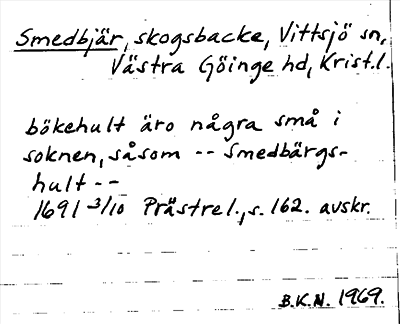 Smedbjär, skogsbacke, Vittsjö sn,
Västra Göinge hd, Krist.l.
bökehult äro några små i
soknen, såsom -- Smedbärgs-
hult --
1691 3/10 Prästrel., s. 162. avskr.
B.K.N. 1969.